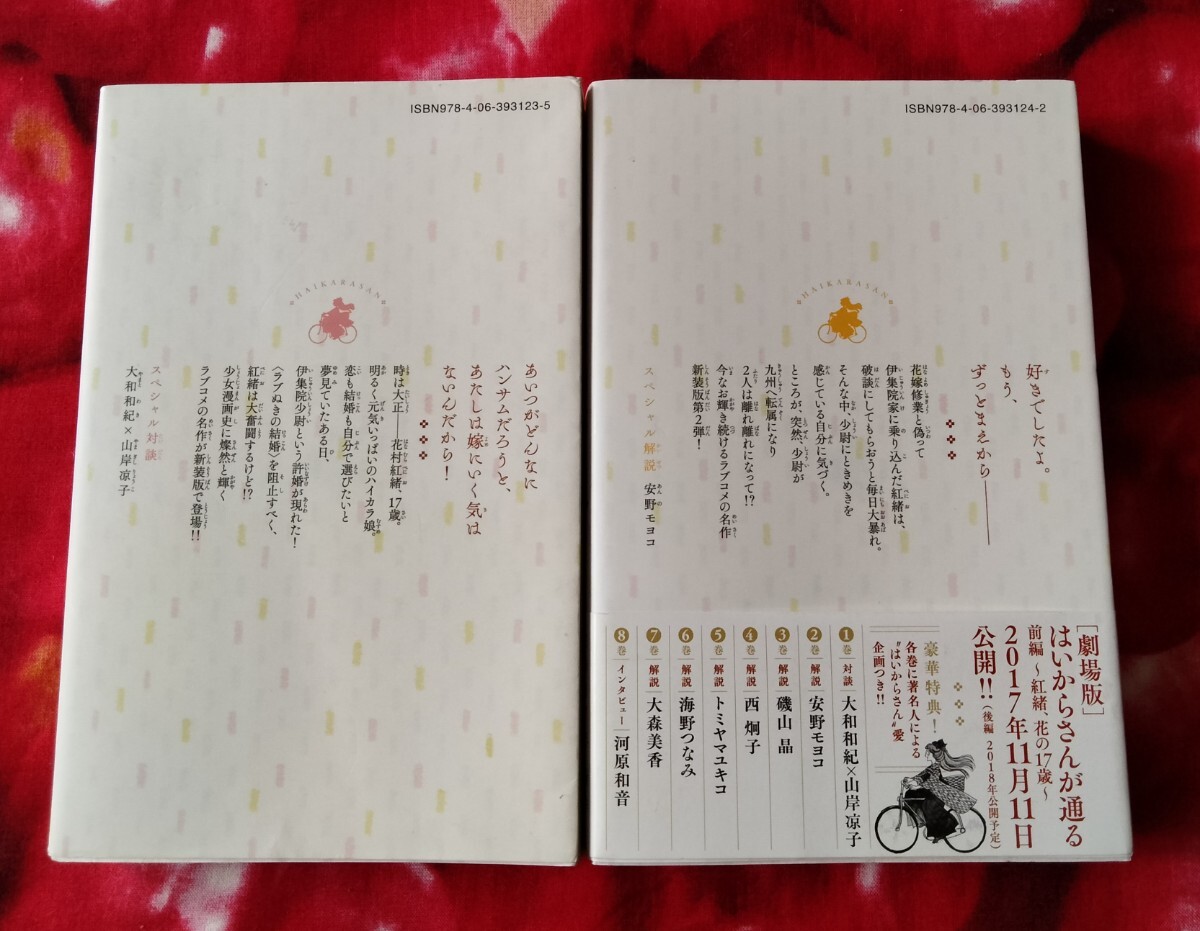 ISBN978-4-06-393123-5
HAIKARASAN
あいつがどんなに
ハンサムだろうと、
あたしは嫁にいく気は
ないんだから！
時は大正――花村紅緒、17歳。
明るく元気いっぱいのハイカラ娘。
恋も結婚も自分で選びたいと
夢見ていたある日、
伊集院少尉という許婚が現れた！
〈ラブぬきの結婚〉を阻止すべく、
紅緒は大奮闘するけど!?
少女漫画史に燦然と輝く
ラブコメの名作が新装版で登場!!
スペシャル対談
大和和紀×山岸凉子
ISBN978-4-06-393124-2
HAIKARASAN
好きでしたよ。
もう、
ずっとまえから――
花嫁修業と偽って
伊集院家に乗り込んだ紅緒は、
破談にしてもらおうと毎日大暴れ。
そんな中、少尉にときめきを
感じている自分に気づく。
ところが、突然、少尉が
九州へ転属になり
2人は離れ離れになって!?
今なお輝き続けるラブコメの名作
新装版第2弾！
スペシャル解説 安野モヨコ
［劇場版］
はいからさんが通る
前編 ～紅緒、花の17歳～
2017年11月11日
公開!!（後編 2018年公開予定）
豪華特典！
各巻に著名人による
“はいからさん”愛
企画つき!!
1巻 対談 大和和紀×山岸凉子
2巻 解説 安野モヨコ
3巻 解説 磯山晶
4巻 解説 西炯子
5巻 解説 トミヤマユキコ
6巻 解説 海野つなみ
7巻 解説 大森美香
8巻 インタビュー 河原和音